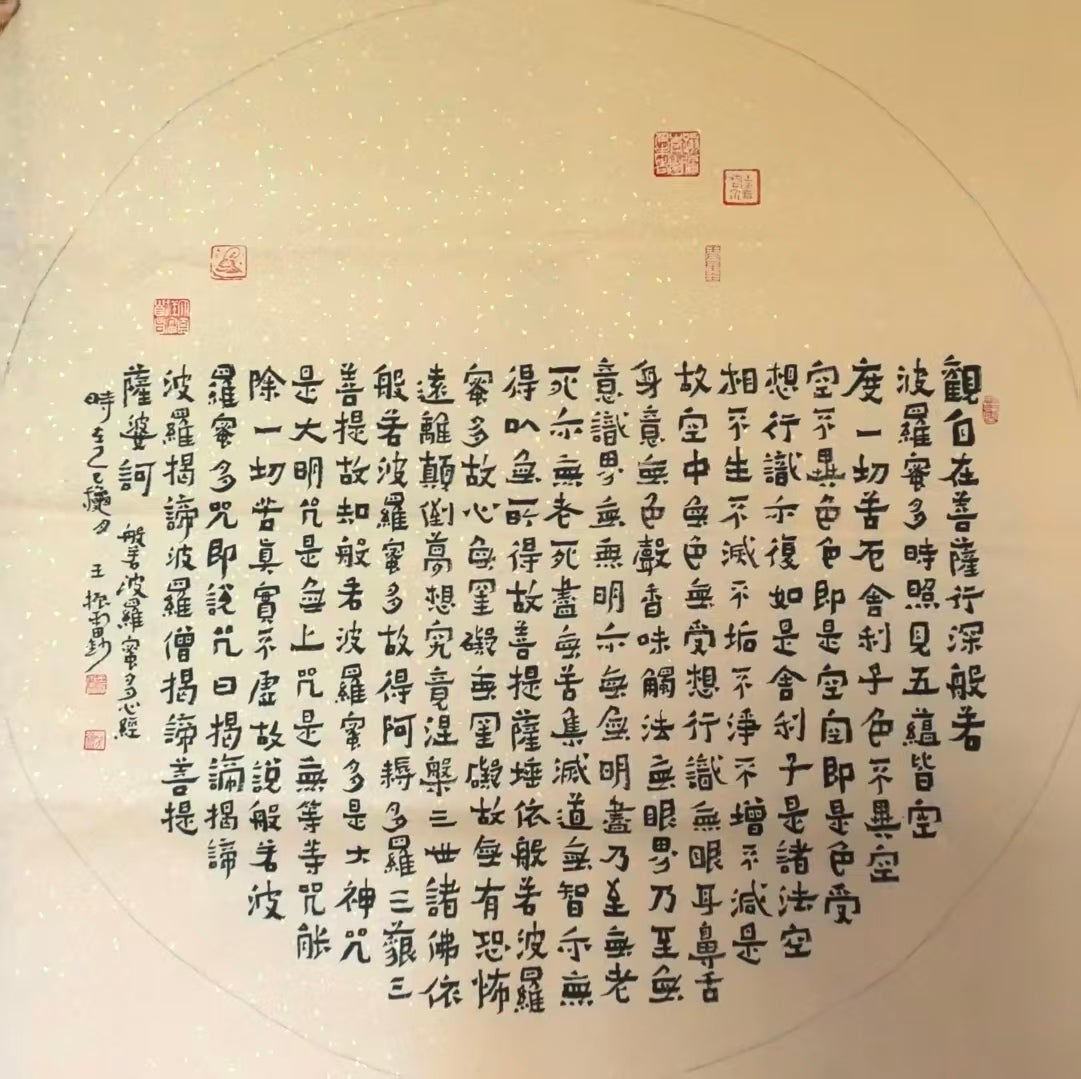 觀自在菩薩行深般若
波羅蜜多時照見五蘊皆空
度一切苦厄舍利子色不異空
空不異色色即是空空即是色受
想行識亦復如是舍利子是諸法空
相不生不滅不垢不淨不增不減是
故空中無色無受想行識無眼耳鼻舌
身意無色聲香味觸法無眼界乃至無
意識界無無明亦無無明盡乃至無老
死亦無老死盡無苦集滅道無智亦無
得以無所得故菩提薩埵依般若波羅
蜜多故心無罣礙無罣礙故無有恐怖
遠離顛倒夢想究竟涅槃三世諸佛依
般若波羅蜜多故得阿耨多羅三藐三
菩提故知般若波羅蜜多是大神咒
是大明咒是無上咒是無等等咒能
除一切苦真實不虛故說般若波
羅蜜多咒即說咒曰揭諦揭諦
波羅揭諦波羅僧揭諦菩提
薩婆訶 般若波羅蜜多心經
時在乙巳 月 王振雷鈔